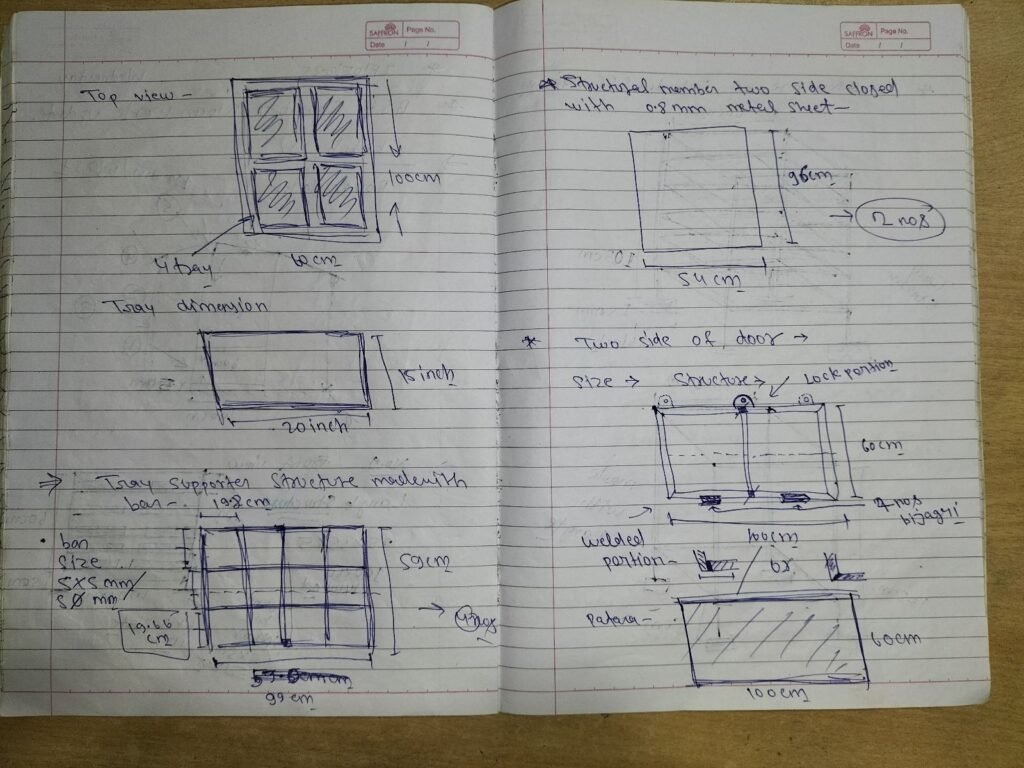 SAFFRON
Page No.
Date / /
Top view -
100cm
4 tray
60cm
Tray dimension
15 inch
20 inch
⇒ Tray supporter structure made with
bar - 19.8 cm
• bar
size
5x5 mm/
5Ø mm
19.66
cm
59 cm
99 cm
SAFFRON
Page No.
Date / /
* Structural member two side closed
with 0.8 mm metal sheet -
96cm
→ 2 nos
54 cm
* Two side of door →
size → structure → Lock portion
60cm
100cm
welded
portion -
or
Patara -
60cm
100cm